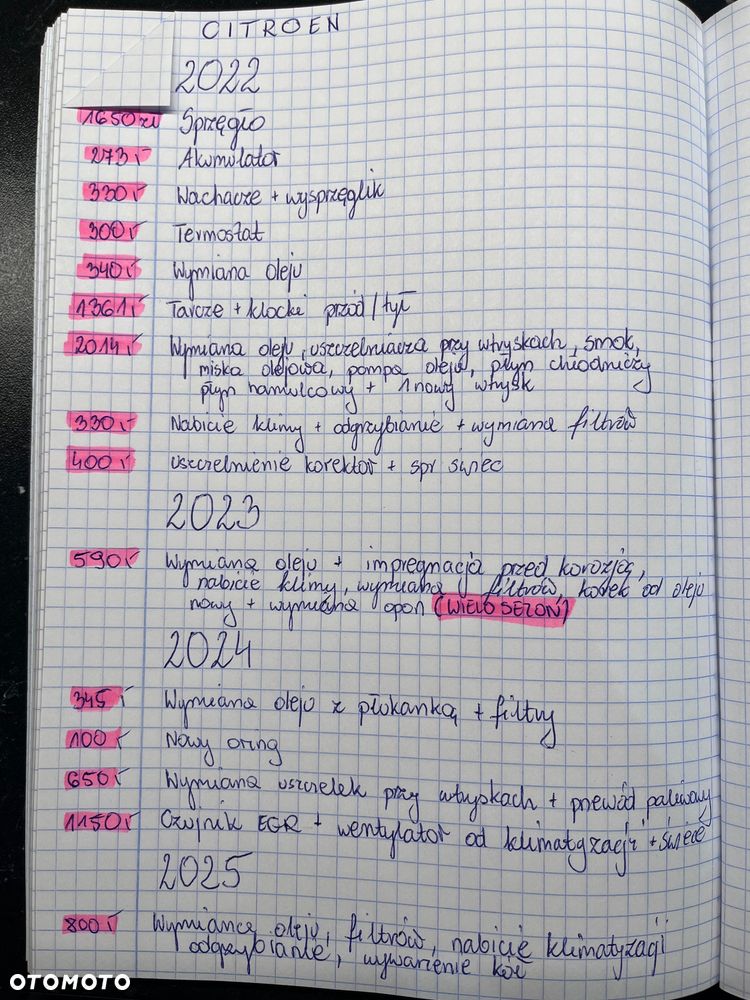 CITROEN
2022
1650 zł Sprzęgło
273,- Akumulator
330,- Wachacze + wysprzęglik
300,- Termostat
340,- Wymiana oleju
1361,- Tarcze + klocki przód/tył
2014,- Wymiana oleju, uszczelniacza przy wtryskach, smok,
miska olejowa, pompa oleju, płyn chłodniczy
płyn hamulcowy + 1 nowy wtrysk
330,- Nabicie klimy + odgrzybianie + wymiana filtrów
400,- uszczelnienie korektor + spr świec
2023
590,- Wymiana oleju + impregnacja przed korozją,
nabicie klimy, wymiana filtrów, korek od oleju
nowy + wymiana opon (WIELO SEZON)
2024
345,- Wymiana oleju z płokanką + filtry
100,- Nowy oring
650,- Wymiana uszczelek przy wtryskach + przewód paliwowy
1150,- Czujnik EGR + wentylator od klimatyzacji + świece
2025
800,- Wymiance oleju, filtrów, nabicie klimatyzagi
odgrzybianie, wywarzenie kół
OTOMOTO